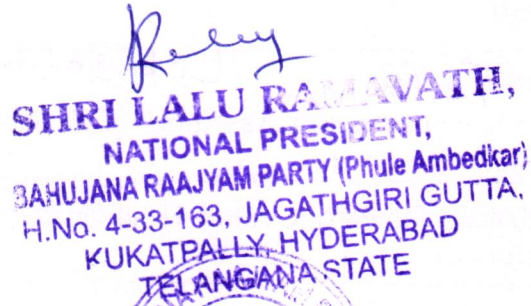 SHRI LALU RAMAVATH,
NATIONAL PRESIDENT,
BAHUJANA RAAJYAM PARTY (Phule Ambedkar)
H.No. 4-33-163, JAGATHGIRI GUTTA,
KUKATPALLY, HYDERABAD
TELANGANA STATE